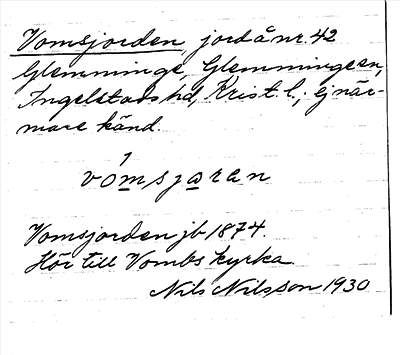 Vomsjorden, jord å nr. 42
Glemminge, Glemminge sn,
Ingelstads hd, Krist. l.; ej när-
mare känd.
vo̲m̲sja̲ran
Vomsjorden jb 1874.
Hör till Vombs kyrka
Nils Nilsson 1930